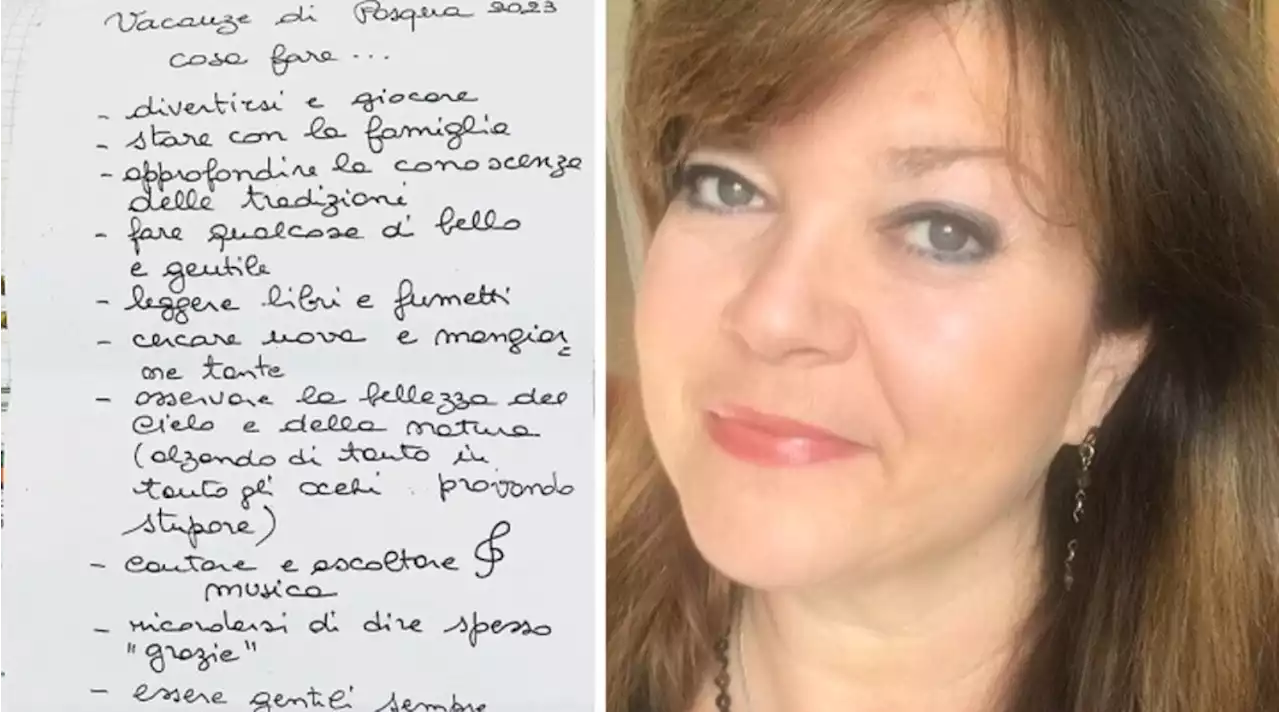 Vacanze di Pasqua 2023
cose fare ...
- divertirsi e giocare
- stare con la famiglia
- approfondire la conoscenza
delle tradizioni
- fare qualcosa di bello
e gentile
- leggere libri e fumetti
- cercare uova e mangiar
ne tante
- osservare la bellezza del
cielo e della natura
(alzando di tanto in
tanto gli occhi provando
stupore)
- cantare e ascoltare
musica
- ricordarsi di dire spesso
"grazie"
- essere gentili sempre